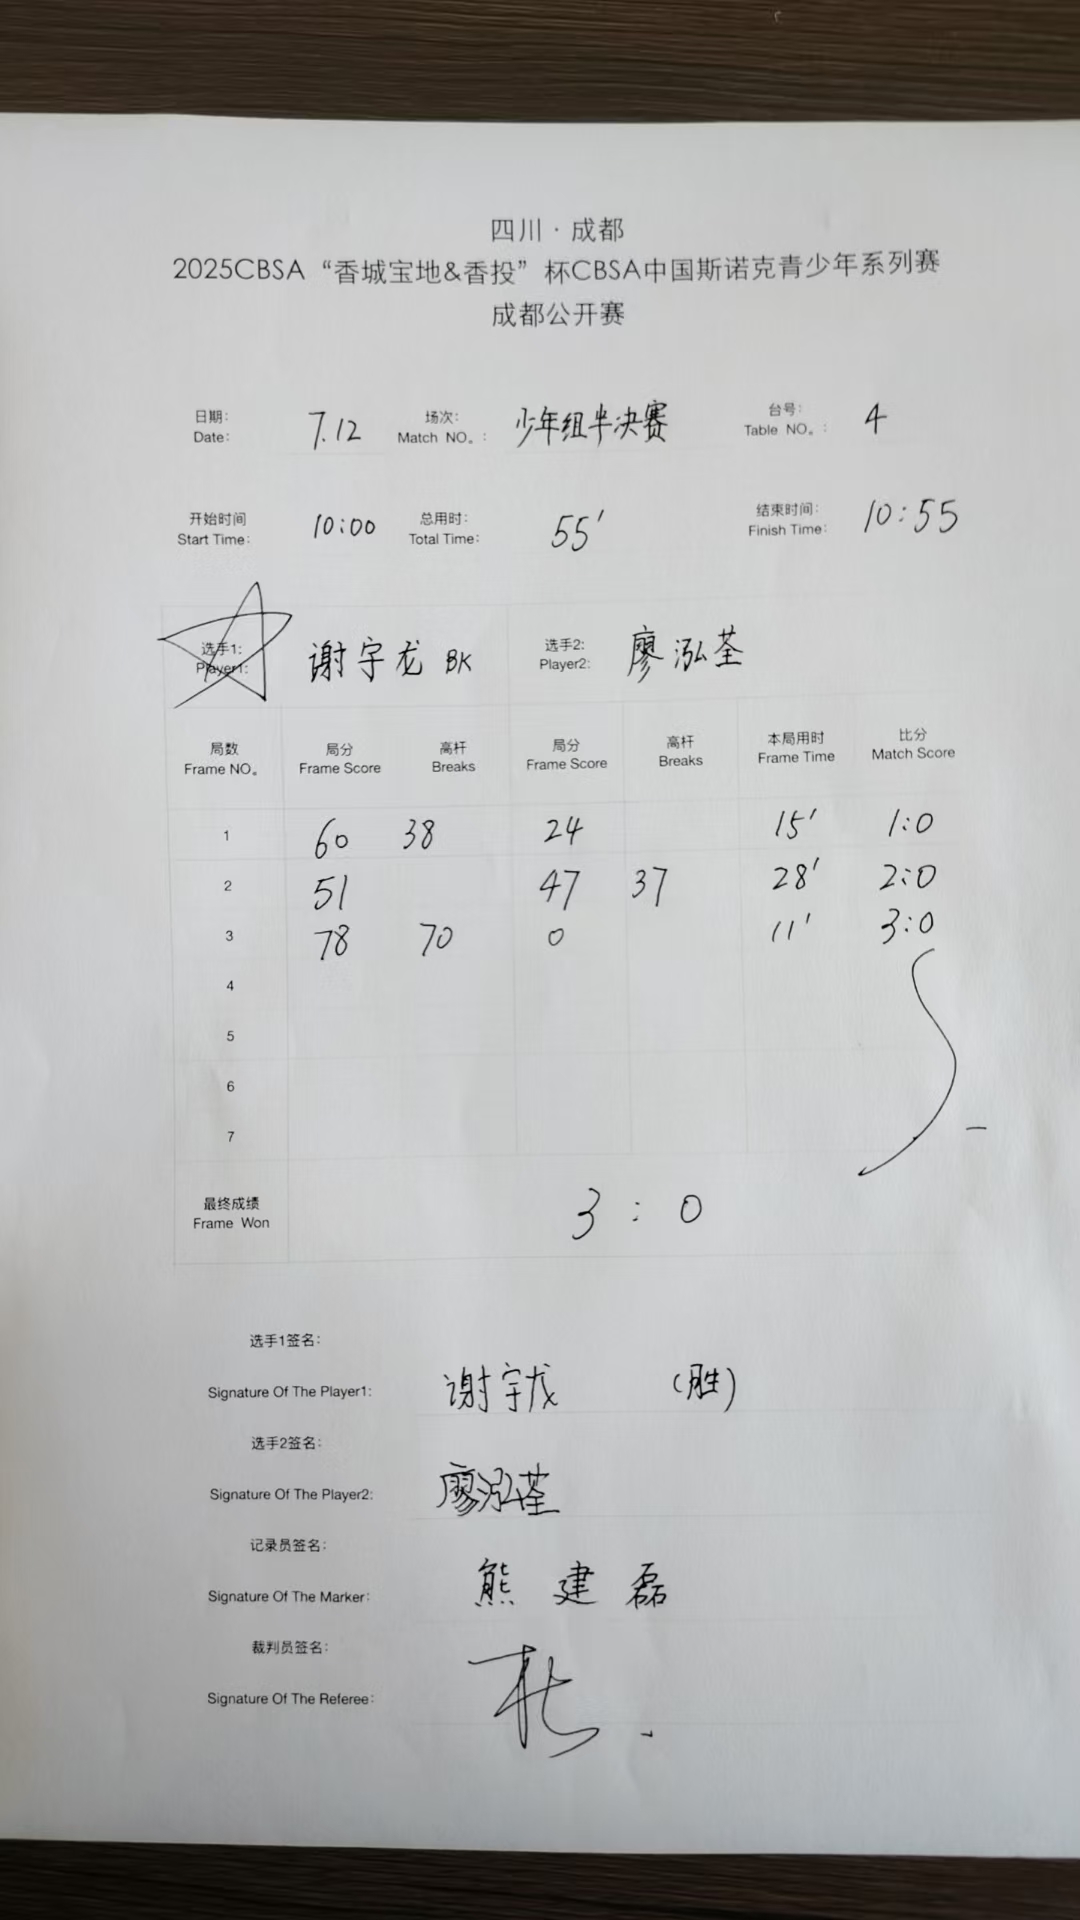 四川·成都
2025CBSA“香城宝地&香投”杯CBSA中国斯诺克青少年系列赛
成都公开赛
日期: 场次: 台号:
Date: 7.12 Match NO。: 少年组半决赛 Table NO。: 4
开始时间 总用时: 结束时间:
Start Time: 10:00 Total Time: 55′ Finish Time: 10:55
选手1: 选手2:
Player1: 谢宇龙 BK Player2: 廖泓荃
局数 局分 高杆 局分 高杆 本局用时 比分
Frame NO。 Frame Score Breaks Frame Score Breaks Frame Time Match Score
1 60 38 24 15′ 1:0
2 51 47 37 28′ 2:0
3 78 70 0 11′ 3:0
4
5
6
7
最终成绩
Frame Won 3 : 0
选手1签名:
Signature Of The Player1: 谢宇龙 (胜)
选手2签名:
Signature Of The Player2: 廖泓荃
记录员签名:
Signature Of The Marker: 熊建磊
裁判员签名:
Signature Of The Referee: